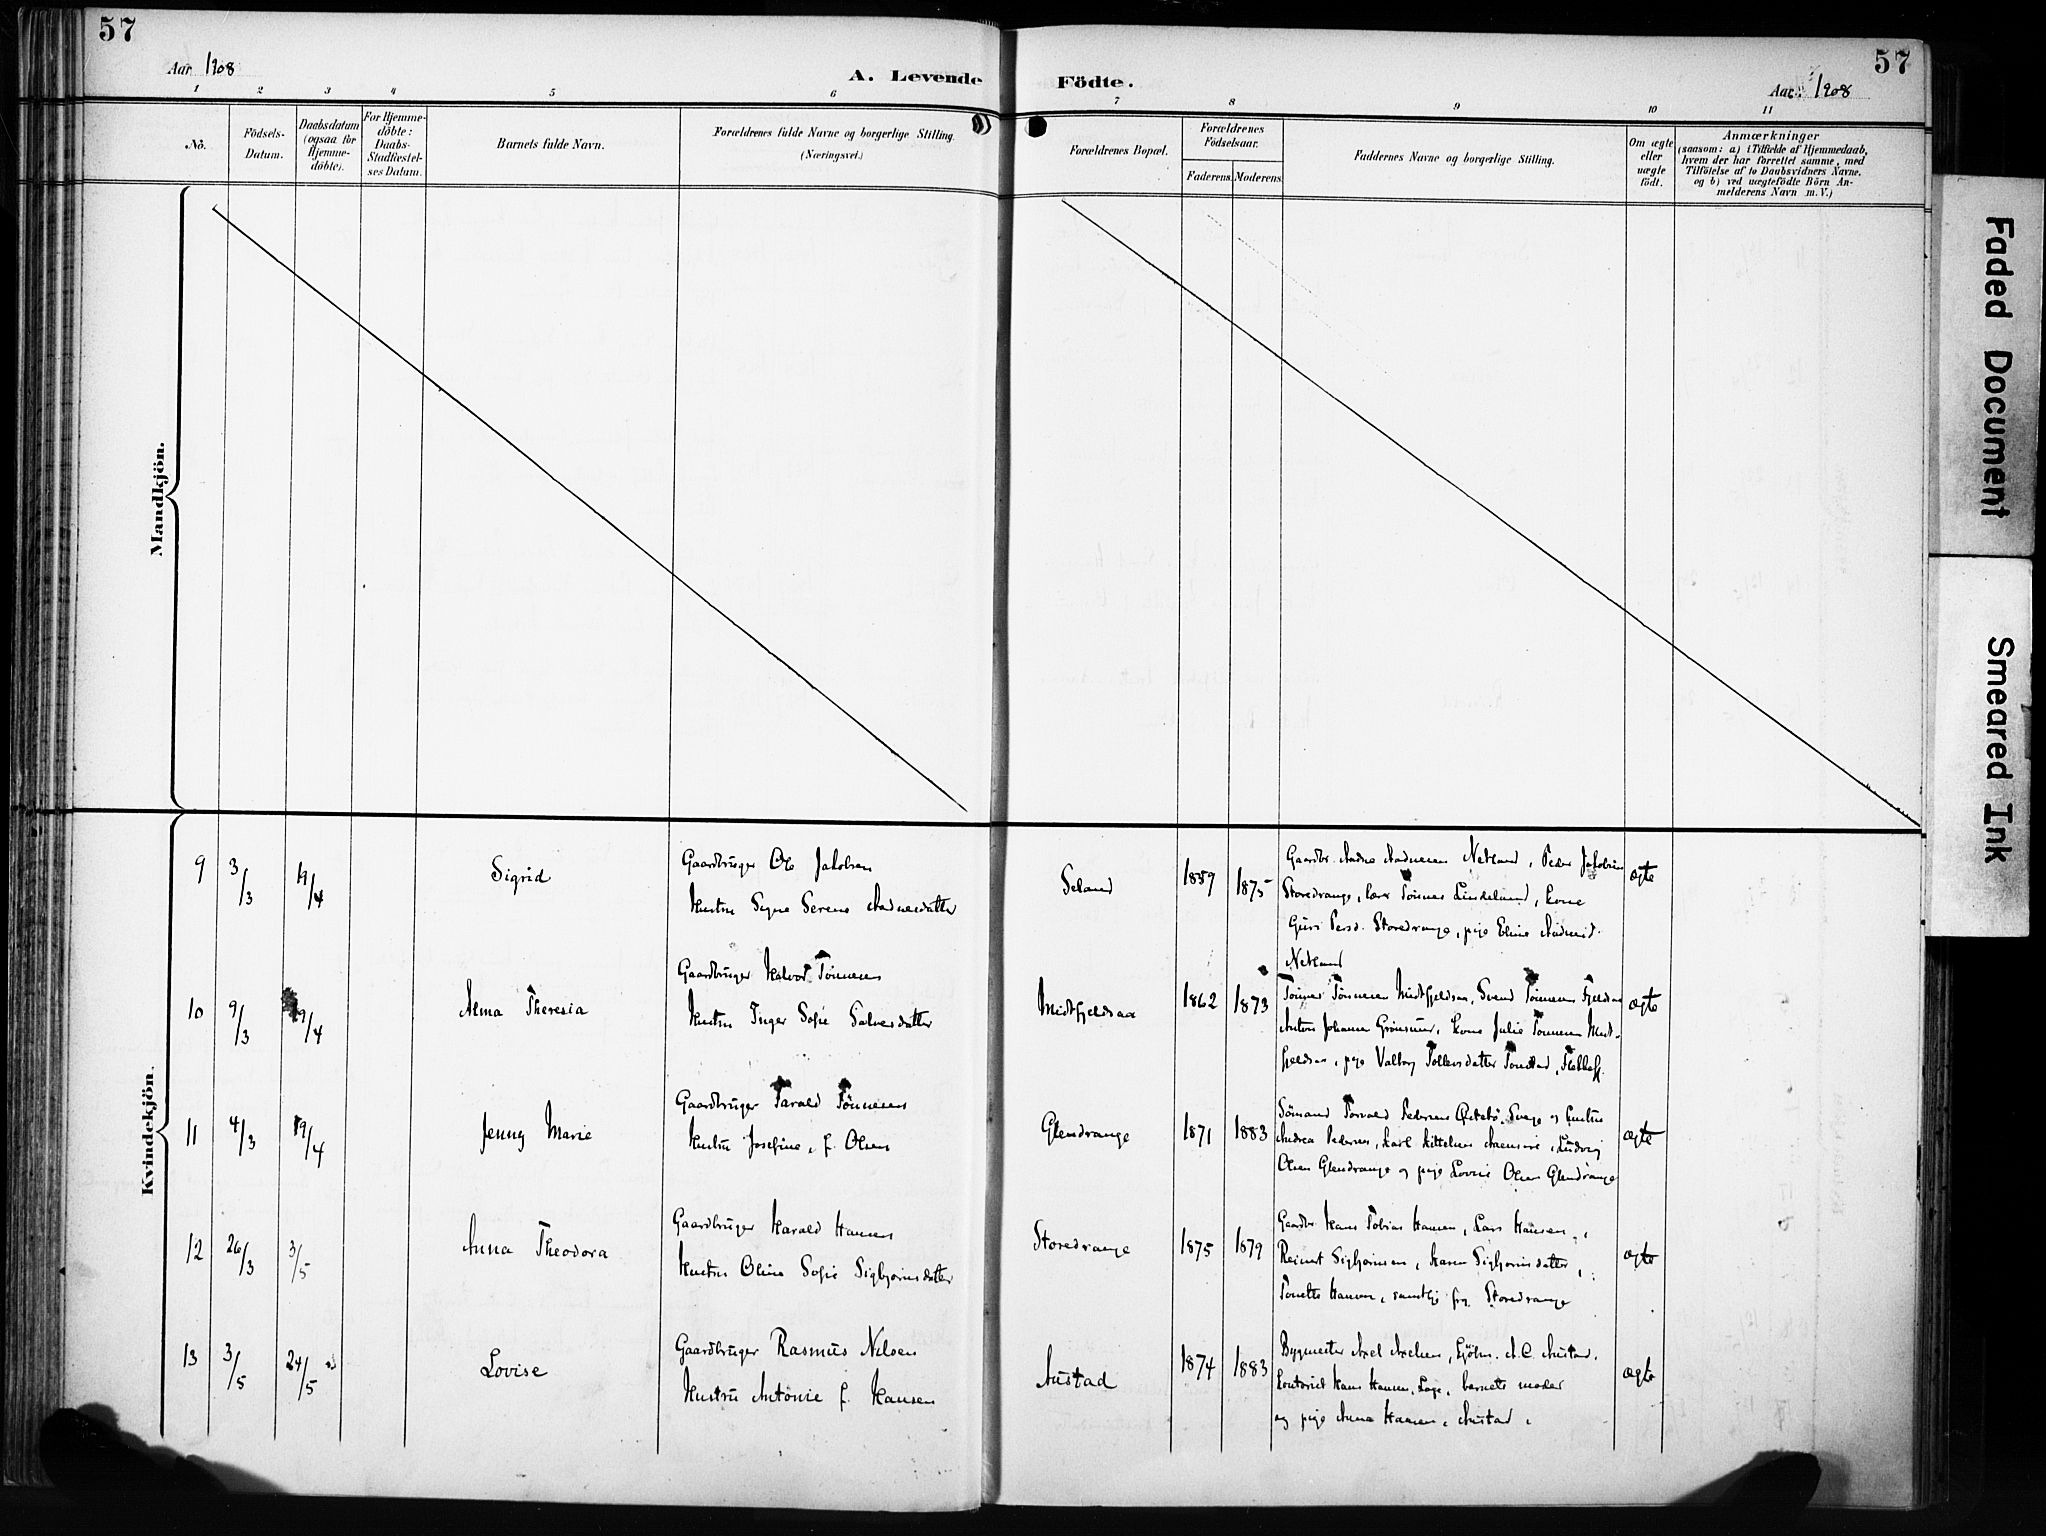 57
57
Aar 1908
A. Levende Födte.
Aar 1908
1 2 3 4 5 6 7 8 9 10 11
No.
Födsels-Datum.
Daabsdatum (ogsaa for Hjemme-döbte).
For Hjemme-döbte: Daabs-Stadfæstel-ses Datum.
Barnets fulde Navn.
Forældrenes fulde Navne og borgerlige Stilling.
(Næringsvei.)
Forældrenes Bopæl.
Forældrenes Födselsaar.
Faderens. Moderens.
Faddernes Navne og borgerlige Stilling.
Om ægte eller uægte födt.
Anmærkninger
(saasom: a) i Tilfælde af Hjemmedaab,
hvem der har forrettet samme, med
Tilföielse af to Daabsvidners Navne.
og b) ved uægtefödte Börn An-
melderens Navn m. V.)
Mandkjön.
Kvindekjön.
9 3/3 19/4 Sigrid
Gaardbruger Ole Jakobsen
Hustru Signe Serene Aadnesdatter
Seland 1859 1875
Gaardbr. Aadne Aadnesen Netland, Peder Jakobsen
Storedrange, Tönnes Lindeland, kone
Guri Persd. Storedrange, pige Eline
Netland
ægte
10 9/3 19/4 Alma Theresia
Gaardbruger Halvor Tönnesen
Hustru Inger Sofie Salvesdatter
Midtfjeldsaa 1862 1873
Tönnes Tönnesen Midtfjeldsaa, Svend Tönnesen Fjeldsaa
Anton Johann, kone Julie Tönnesen Midt-
fjeldsaa, pige Valborg Tollevsdatter Tonstad,
ægte
11 4/3 19/4 Jenny Marie
Gaardbruger Tarald Tönnesen
Hustru Josefine, f. Olsen
Glendrange 1871 1883
Sömand Torvald Pedersen og hustru
Andrea Pedersen, Karl Kittelsen, Ludvig
Olsen Glendrange og pige Lovise Olsen Glendrange
ægte
12 26/3 3/5 Anna Theodora
Gaardbruger Harald Hansen
Hustru Oline Sofie Sigbjörnsdatter
Storedrange 1875 1879
Gaardbr. Hans Tobias Hansen, Lars Hansen,
Reinert Sigbjörnsen, Karen Sigbjörnsdatter,
Tonette Hansen, samtlige fra Storedrange
ægte
13 3/5 24/5 Lovise
Gaardbruger Rasmus Nilsen
Hustru Antonie f. Hansen
Austad 1874 1883
Bygmester Axel Axelsen, A.C. Austad,
Hans Hansen, barnets moder
og pige Anna Hansen, Austad.
ægte
Faded Document
Smeared Ink